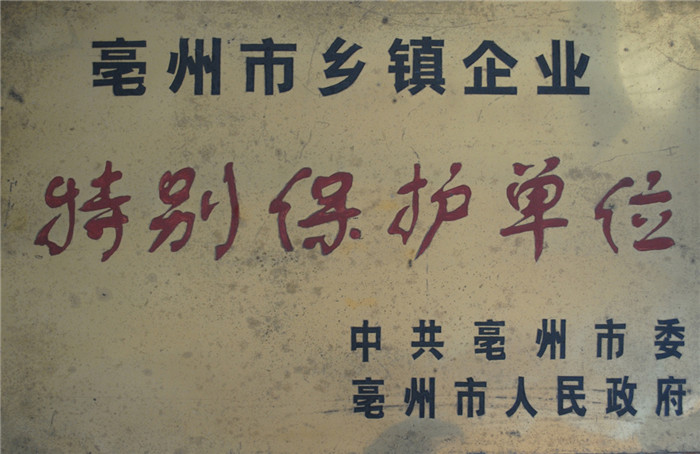 亳州市乡镇企业
特别保护单位
中共亳州市委
亳州市人民政府